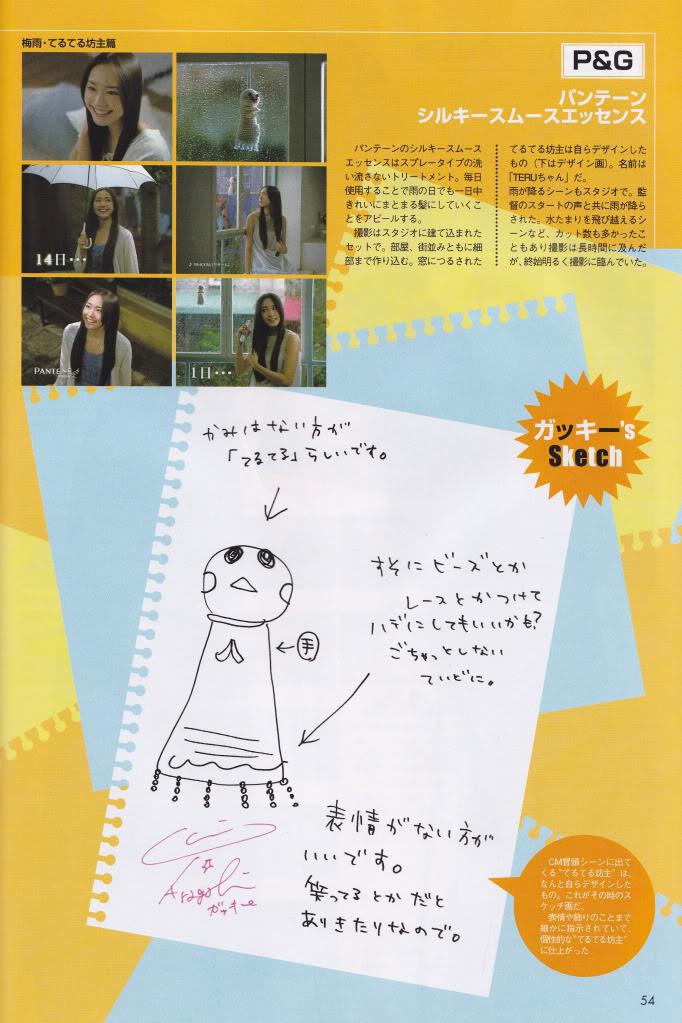 梅雨・てるてる坊主篇
14日・・・
PANTENE
1日・・・
P&G
パンテーン
シルキースムースエッセンス
パンテーンのシルキースムース
エッセンスはスプレータイプの洗
い流さないトリートメント。毎日
使用することで雨の日でも一日中
きれいにまとまる髪にしていくこ
とをアピールする。
撮影はスタジオに建て込まれた
セットで。部屋、街並みともに細
部まで作り込む。窓につるされた
てるてる坊主は自らデザインした
もの（下はデザイン画）。名前は
「TERUちゃん」だ。
雨が降るシーンもスタジオで。監
督のスタートの声と共に雨が降ら
された。水たまりを飛び越えるシ
ーンなど、カット数も多かったこ
ともあり撮影は長時間に及んだ
が、終始明るく撮影に臨んでいた。
ガッキー's
Sketch
かみはない方が
「てるてる」らしいです。
手
すそにビーズとか
レースとかつけて
ハデにしてもいいかも?
ごちゃっとしない
ていどに。
表情がない方が
いいです。
笑ってるとかだと
ありきたりなので。
Aragaki
ガッキー
CM冒頭シーンに出て
くる“てるてる坊主”は、
なんと自らデザインした
もの。これがその時のス
ケッチ画だ。
表情や飾りのことまで
細かに指示されていて、
個性的な“てるてる坊主”
に仕上がった
54